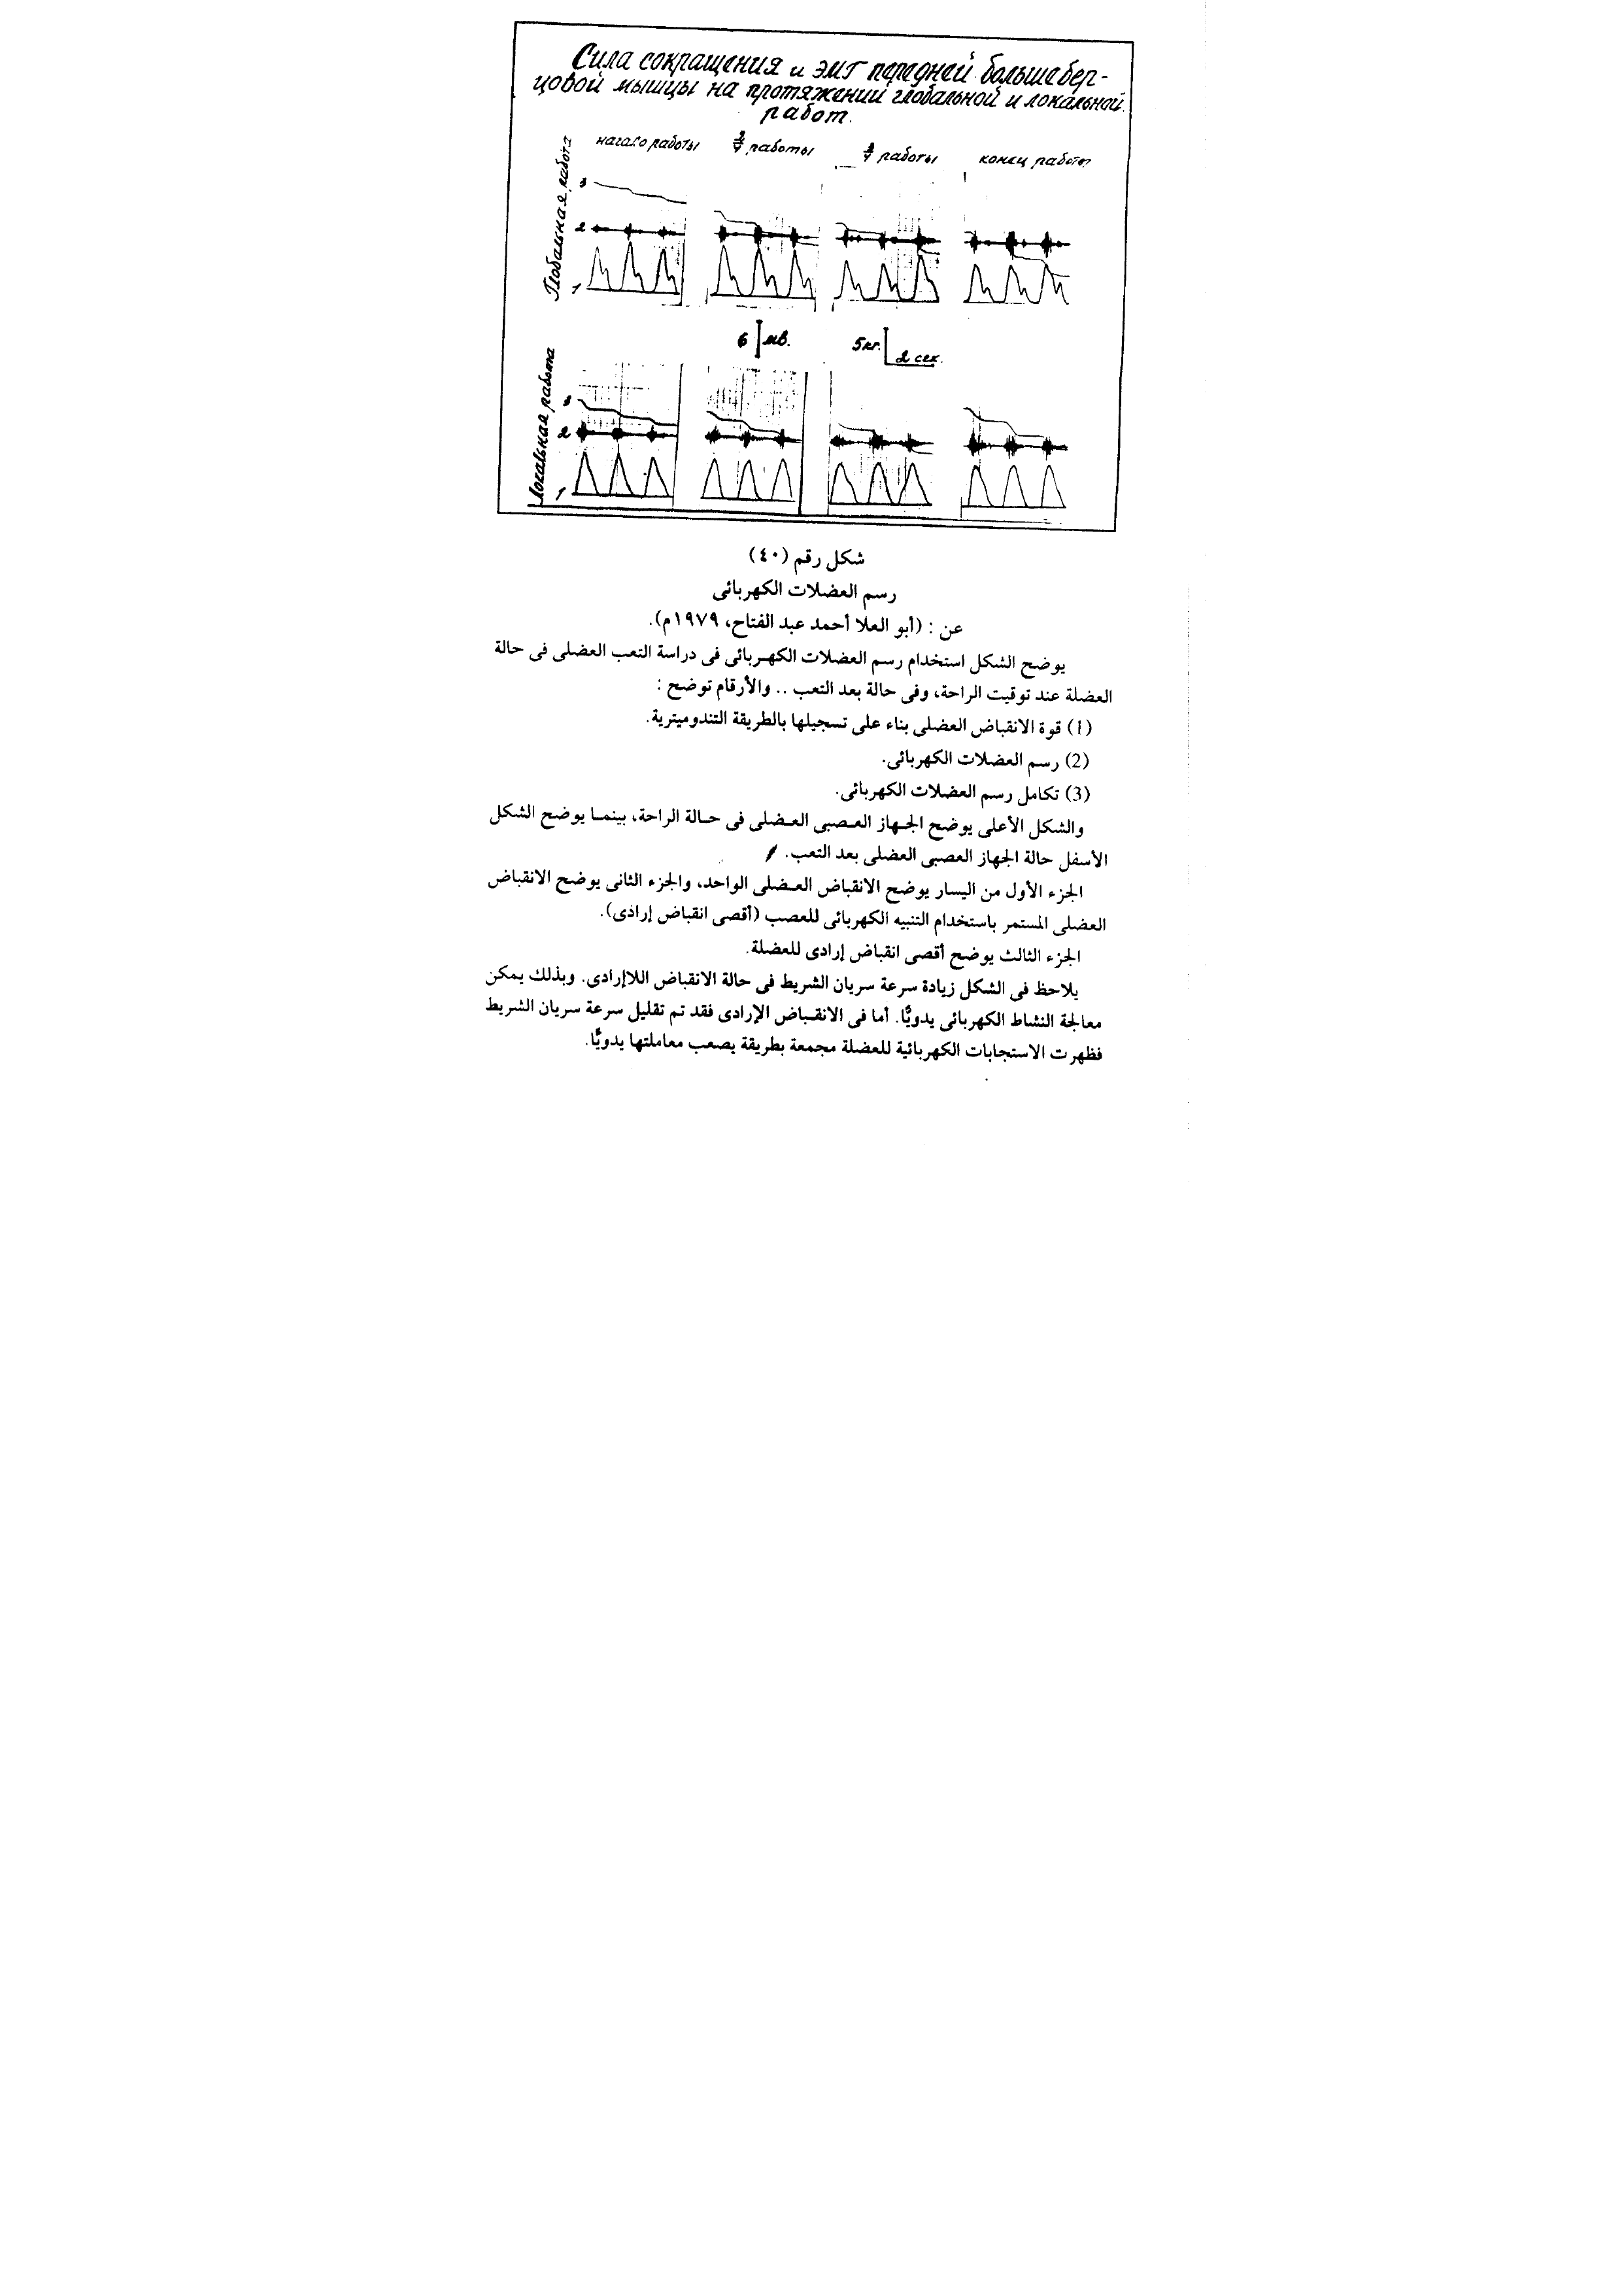 Сила сокращения и ЭМГ передней большебер-
цовой мышцы на протяжении глобальной и локальной
работ.
начало работы
работы
работы
конец работы
Глобальная работа
3
2
1
6 мв.
5 кг.
2 сек.
Локальная работа
3
2
1
شكل رقم (٤٠)
رسم العضلات الكهربائى
عن : (أبو العلا أحمد عبد الفتاح، ١٩٧٩م).
يوضح الشكل استخدام رسم العضلات الكهربائى فى دراسة التعب العضلى فى حالة
العضلة عند توقيت الراحة، وفى حالة بعد التعب .. والأرقام توضح :
(1) قوة الانقباض العضلى بناء على تسجيلها بالطريقة التندوميترية.
(2) رسم العضلات الكهربائى.
(3) تكامل رسم العضلات الكهربائى.
والشكل الأعلى يوضح الجهاز العصبى العضلى فى حالة الراحة، بينما يوضح الشكل
الأسفل حالة الجهاز العصبى العضلى بعد التعب.
الجزء الأول من اليسار يوضح الانقباض العضلى الواحد، والجزء الثانى يوضح الانقباض
العضلى المستمر باستخدام التنبيه الكهربائى للعصب (أقصى انقباض إرادى).
الجزء الثالث يوضح أقصى انقباض إرادى للعضلة.
يلاحظ فى الشكل زيادة سرعة سريان الشريط فى حالة الانقباض اللاإرادى. وبذلك يمكن
معالجة النشاط الكهربائى يدويًّا. أما فى الانقباض الإرادى فقد تم تقليل سرعة سريان الشريط
فظهرت الاستجابات الكهربائية للعضلة مجمعة بطريقة يصعب معاملتها يدويًّا.